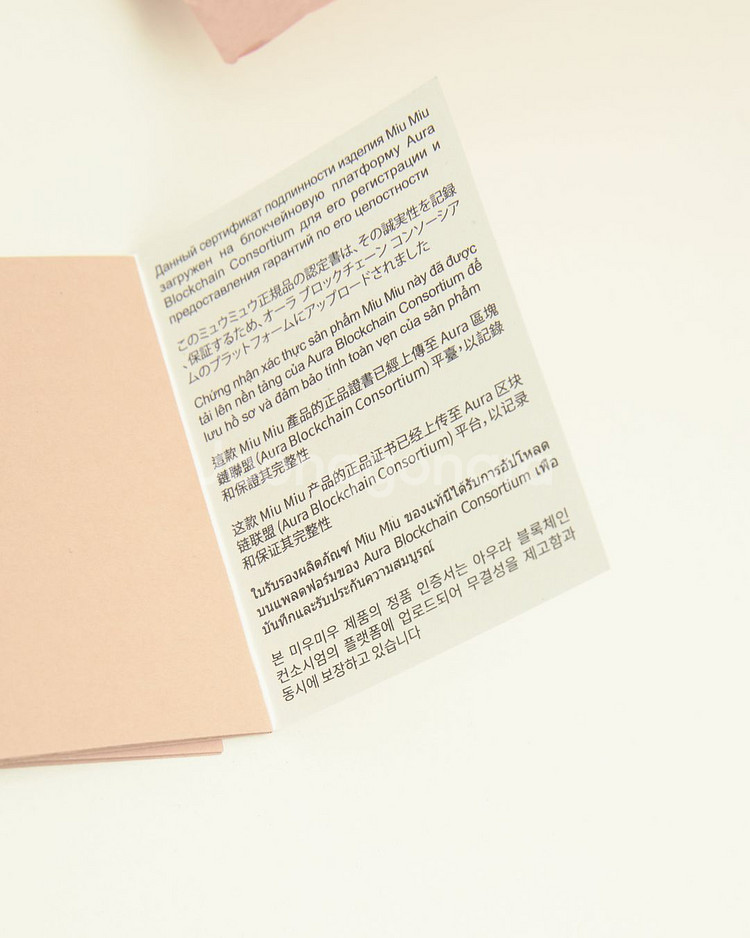 Данный сертификат подлинности изделия Miu Miu
загружен на блокчейновую платформу Aura
Blockchain Consortium для его регистрации и
предоставления гарантий по его целостности
このミュウミュウ正規品の認定書は、その誠実性を記録
、保証するため、オーラ ブロックチェーン コンソーシア
ムのプラットフォームにアップロードされました
Chứng nhận xác thực sản phẩm Miu Miu này đã được
tải lên nền tảng của Aura Blockchain Consortium để
lưu hồ sơ và đảm bảo tính toàn vẹn của sản phẩm
這款 Miu Miu 產品的正品證書已經上傳至 Aura 區塊
鏈聯盟 (Aura Blockchain Consortium) 平臺，以記錄
和保證其完整性
这款 Miu Miu 产品的正品证书已经上传至 Aura 区块
链联盟 (Aura Blockchain Consortium) 平台，以记录
和保证其完整性
ใบรับรองผลิตภัณฑ์ Miu Miu ของแท้นี้ได้รับการอัปโหลด
บนแพลตฟอร์มของ Aura Blockchain Consortium เพื่อ
บันทึกและรับประกันความสมบูรณ์
본 미우미우 제품의 정품 인증서는 아우라 블록체인
컨소시엄의 플랫폼에 업로드되어 무결성을 제고함과
동시에 보장하고 있습니다